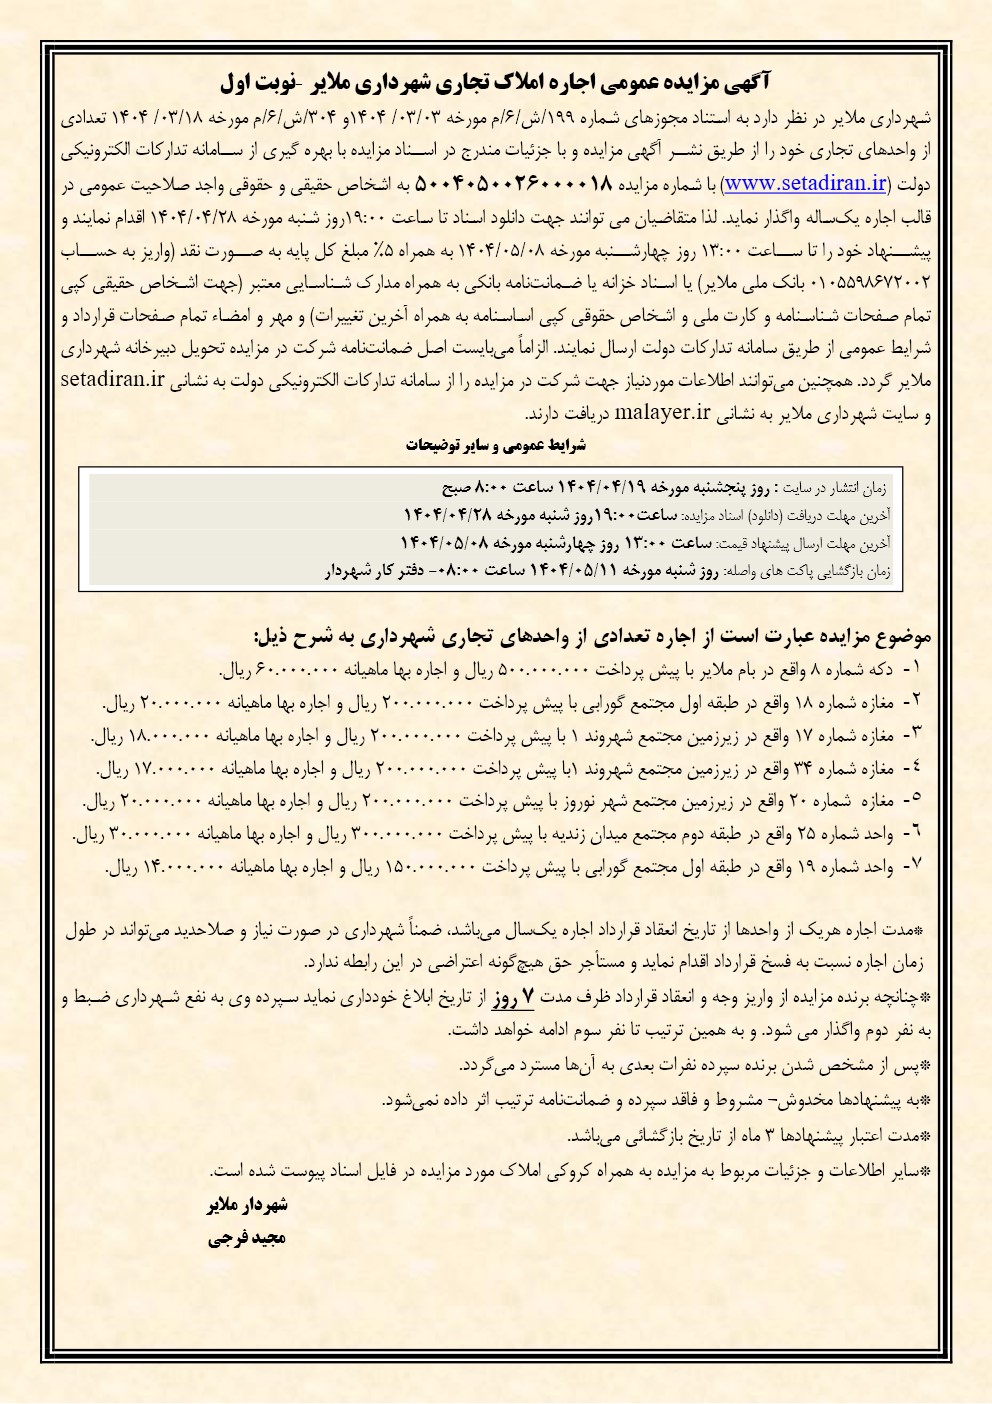 آگهی مزایده عمومی اجاره املاک تجاری شهرداری ملایر -نوبت اول
شهرداری ملایر در نظر دارد به استناد مجوزهای شماره ۱۹۹/ش/۶/م مورخه ۰۳/۰۳/ ۱۴۰۴و ۳۰۴/ش/۶/م مورخه ۰۳/۱۸/ ۱۴۰۴ تعدادی
از واحدهای تجاری خود را از طریق نشـــر آگهی مزایده و با جزئیات مندرج در اسـناد مزایده با بهره گیری از ســامانه تدارکات الکترونیکی
دولت (www.setadiran.ir) با شماره مزایده ۵۰۰۴۰۵۰۰۲۶۰۰۰۰۱۸ به اشخاص حقیقی و حقوقی واجد صلاحیت عمومی در
قالب اجاره یک‌ساله واگذار نماید. لذا متقاضیان می توانند جهت دانلود اسناد تا ساعت ۱۹:۰۰روز شنبه مورخه ۱۴۰۴/۰۴/۲۸ اقدام نمایند و
پیشـــنهاد خود را تا ســـاعت ۱۳:۰۰ روز چهارشـــنبه مورخه ۱۴۰۴/۰۵/۰۸ به همراه ۵٪ مبلغ کل پایه به صـــورت نقد (واریز به حســـاب
۰۱۰۵۵۹۸۶۷۲۰۰۲ بانک ملی ملایر) یا اسناد خزانه یا ضـمانت‌نامه بانکی به همراه مدارک شناسـایی معتبر (جهت اشـخاص حقیقی کپی
تمام صـفحات شـناسـنامه و کارت ملی و اشـخاص حقوقی کپی اسـاسـنامه به همراه آخرین تغییرات) و مهر و امضـاء تمام صـفحات قرارداد و
شرایط عمومی از طریق سامانه تدارکات دولت ارسال نمایند. الزاماً می‌بایست اصل ضمانت‌نامه شرکت در مزایده تحویل دبیرخانه شهرداری
ملایر گردد. همچنین می‌توانند اطلاعات موردنیاز جهت شرکت در مزایده را از سامانه تدارکات الکترونیکی دولت به نشانی setadiran.ir
و سایت شهرداری ملایر به نشانی malayer.ir دریافت دارند.
شرایط عمومی و سایر توضیحات
زمان انتشار در سایت : روز پنجشنبه مورخه ۱۴۰۴/۰۴/۱۹ ساعت ۸:۰۰ صبح
آخرین مهلت دریافت (دانلود) اسناد مزایده: ساعت۱۹:۰۰روز شنبه مورخه ۱۴۰۴/۰۴/۲۸
آخرین مهلت ارسال پیشنهاد قیمت: ساعت ۱۳:۰۰ روز چهارشنبه مورخه ۱۴۰۴/۰۵/۰۸
زمان بازگشایی پاکت های واصله: روز شنبه مورخه ۱۴۰۴/۰۵/۱۱ ساعت ۰۸:۰۰- دفتر کار شهردار
موضوع مزایده عبارت است از اجاره تعدادی از واحدهای تجاری شهرداری به شرح ذیل:
۱- دکه شماره ۸ واقع در بام ملایر با پیش پرداخت ۵۰۰.۰۰۰.۰۰۰ ریال و اجاره بها ماهیانه ۶۰.۰۰۰.۰۰۰ ریال.
۲- مغازه شماره ۱۸ واقع در طبقه اول مجتمع گورابی با پیش پرداخت ۲۰۰.۰۰۰.۰۰۰ ریال و اجاره بها ماهیانه ۲۰.۰۰۰.۰۰۰ ریال.
۳- مغازه شماره ۱۷ واقع در زیرزمین مجتمع شهروند ۱ با پیش پرداخت ۲۰۰.۰۰۰.۰۰۰ ریال و اجاره بها ماهیانه ۱۸.۰۰۰.۰۰۰ ریال.
٤- مغازه شماره ۳۴ واقع در زیرزمین مجتمع شهروند ۱با پیش پرداخت ۲۰۰.۰۰۰.۰۰۰ ریال و اجاره بها ماهیانه ۱۷.۰۰۰.۰۰۰ ریال.
٥- مغازه شماره ۲۰ واقع در زیرزمین مجتمع شهر نوروز با پیش پرداخت ۲۰۰.۰۰۰.۰۰۰ ریال و اجاره بها ماهیانه ۲۰.۰۰۰.۰۰۰ ریال.
٦- واحد شماره ۲۵ واقع در طبقه دوم مجتمع میدان زندیه با پیش پرداخت ۳۰۰.۰۰۰.۰۰۰ ریال و اجاره بها ماهیانه ۳۰.۰۰۰.۰۰۰ ریال.
۷- واحد شماره ۱۹ واقع در طبقه اول مجتمع گورابی با پیش پرداخت ۱۵۰.۰۰۰.۰۰۰ ریال و اجاره بها ماهیانه ۱۴.۰۰۰.۰۰۰ ریال.
*مدت اجاره هریک از واحدها از تاریخ انعقاد قرارداد اجاره یک‌سال می‌باشد، ضمناً شهرداری در صورت نیاز و صلاحدید می‌تواند در طول
زمان اجاره نسبت به فسخ قرارداد اقدام نماید و مستأجر حق هیچ‌گونه اعتراضی در این رابطه ندارد.
*چنانچه برنده مزایده از واریز وجه و انعقاد قرارداد ظرف مدت ۷ روز از تاریخ ابلاغ خودداری نماید سـپرده وی به نفع شـهرداری ضـبط و
به نفر دوم واگذار می شود. و به همین ترتیب تا نفر سوم ادامه خواهد داشت.
*پس از مشخص شدن برنده سپرده نفرات بعدی به آن‌ها مسترد می‌گردد.
*به پیشنهادها مخدوش– مشروط و فاقد سپرده و ضمانت‌نامه ترتیب اثر داده نمی‌شود.
*مدت اعتبار پیشنهادها ۳ ماه از تاریخ بازگشائی می‌باشد.
*سایر اطلاعات و جزئیات مربوط به مزایده به همراه کروکی املاک مورد مزایده در فایل اسناد پیوست شده است.
شهردار ملایر
مجید فرجی